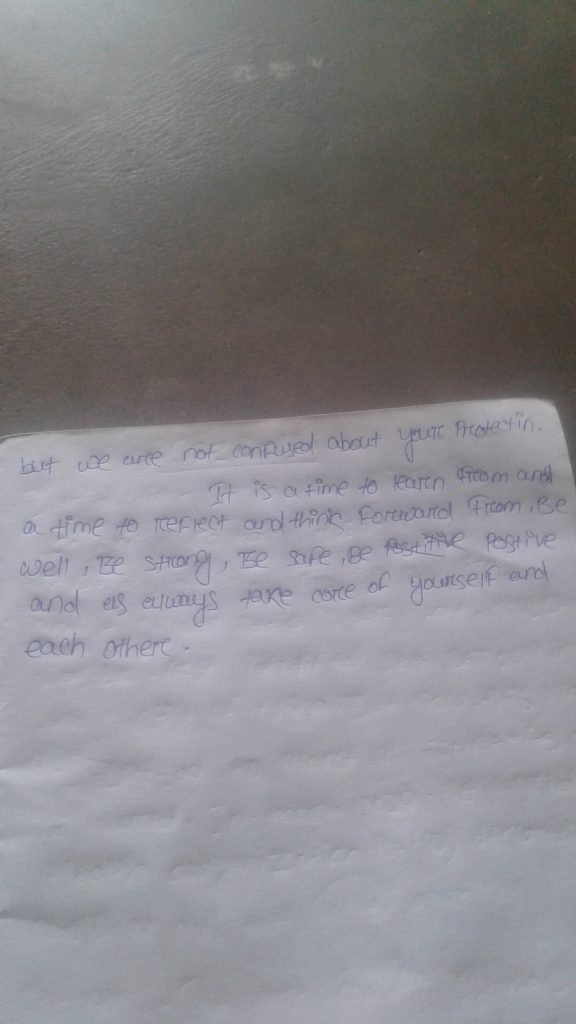 but we are not confused about your Protectin.
It is a time to learn from and
a time to reflect and think forward from, Be
well, Be strong, Be safe, Be Postitive Postive
and as always take care of yourself and
each other.